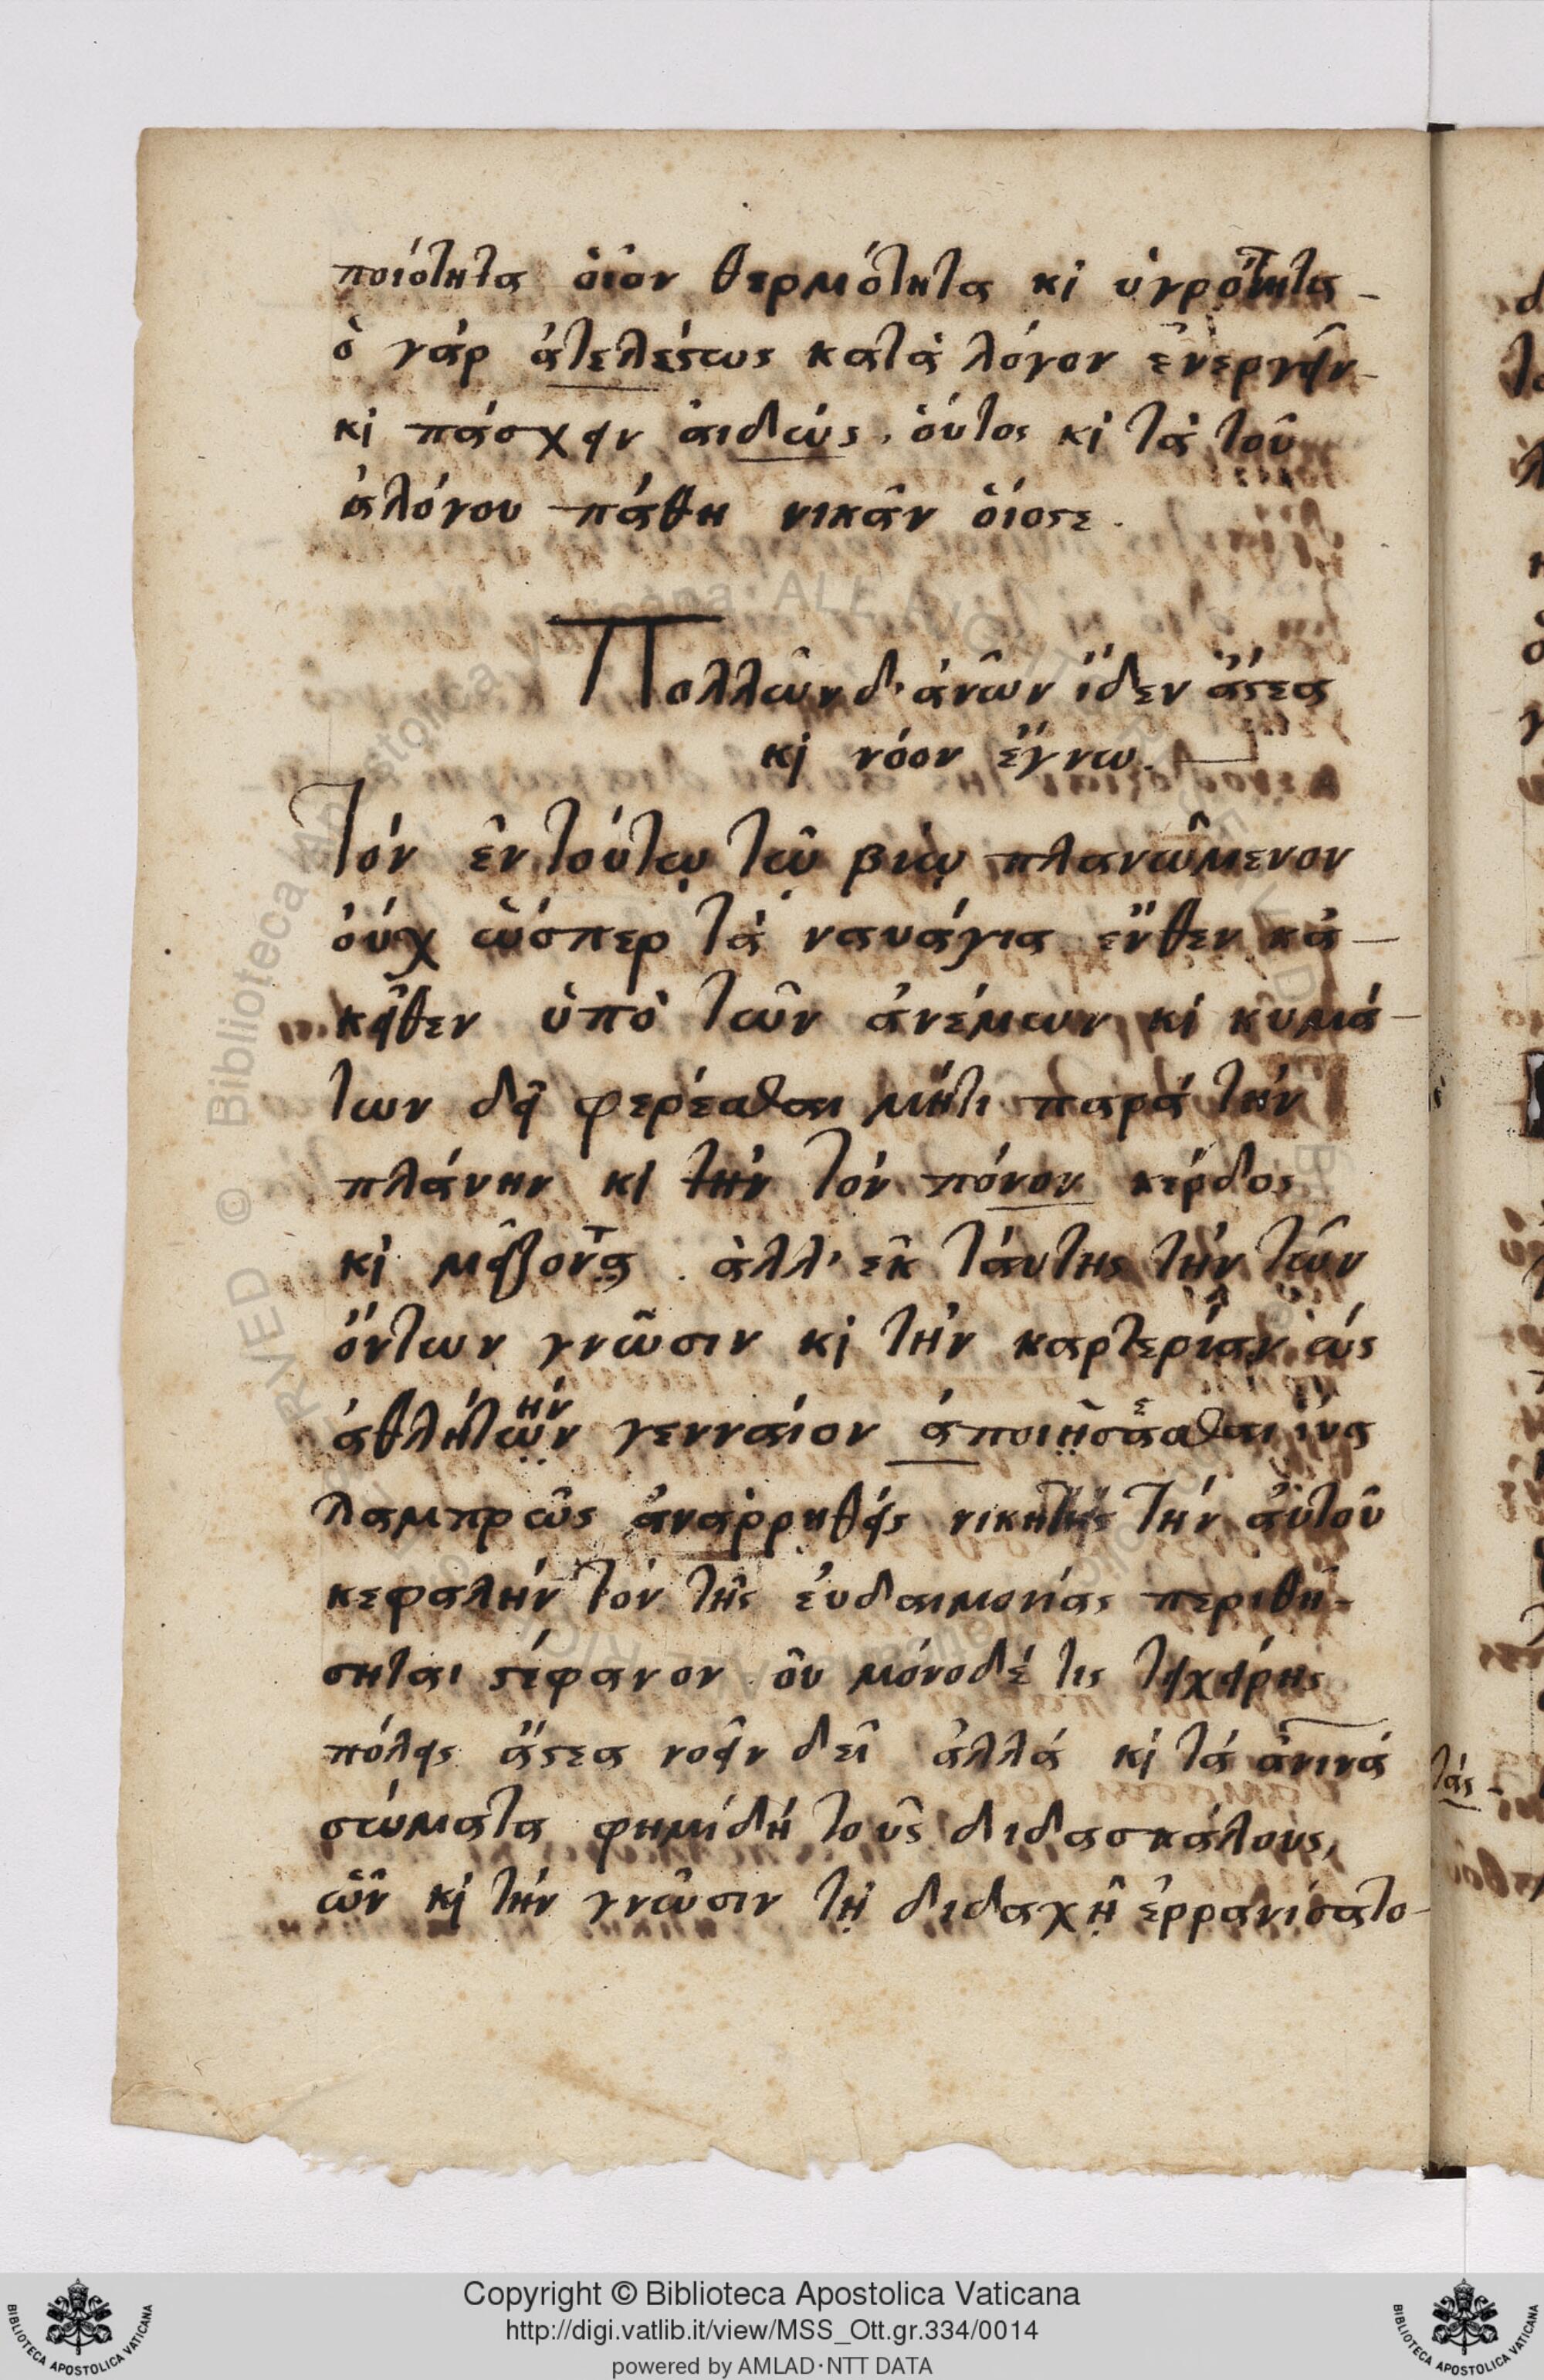 ποιότητα ὁῖον θερμότητα κὶ ὑγρότητα
ὁ γάρ ἀτελέςως κατὰ λόγον ἐνεργεῖν
κὶ πάσχειν ἀιδώς. ὁύτος κὶ τὰ τοῦ
ἀλόγου πάθη νικᾶν ὁίοςε.
Πολλῶν δ' ἀνῶν ἴδεν ἄςεα
κὶ νόον ἔγνω.
Τόν ἐν τούτῳ τῶ βίῳ πλανώμενον
ὀύχ ὡσπερ τὰ ναυάγια ἔνθεν κἀ-
κεῖθεν ὑπὸ τῶν ἀνέμων κὶ κυμά-
των δεῖ φερέσθαι μήτι παρά τὴν
πλάνην κὶ τὴν τὸν πόνον κέρδος
κὶ μείζονα. ἀλλ' ἐκ ταύτης τὴν τῶν
ὄντων γνῶσιν κὶ τὴν καρτερίαν ὡς
ἀθλητὼν γενναίον ἀποιήσασθαι ἵνα
ην ε
λαμπρῶς ἀναρρηθείς νικητής τὴν ἀυτοῦ
κεφαλὴν τὸν τῆς ἐυδαιμονίας περιθή-
σηται ςέφανον ὀυ μόνοδέ τις τειχήρης
πόλεις ἄςεα νοεῖν δεῖ ἀλλά κὶ τά ἀνινά
στώματα φημίδή τοὺς διδασκάλους,
ὧν κὶ τὴν γνῶσιν τῇ διδαχῇ ἐρρανίσατο
τάς
Copyright © Biblioteca Apostolica Vaticana
http://digi.vatlib.it/view/MSS_Ott.gr.334/0014
powered by AMLAD·NTT DATA
BIBLIOTECA APOSTOLICA VATICANA
BIBLIOTECA APOSTOLICA VATICANA